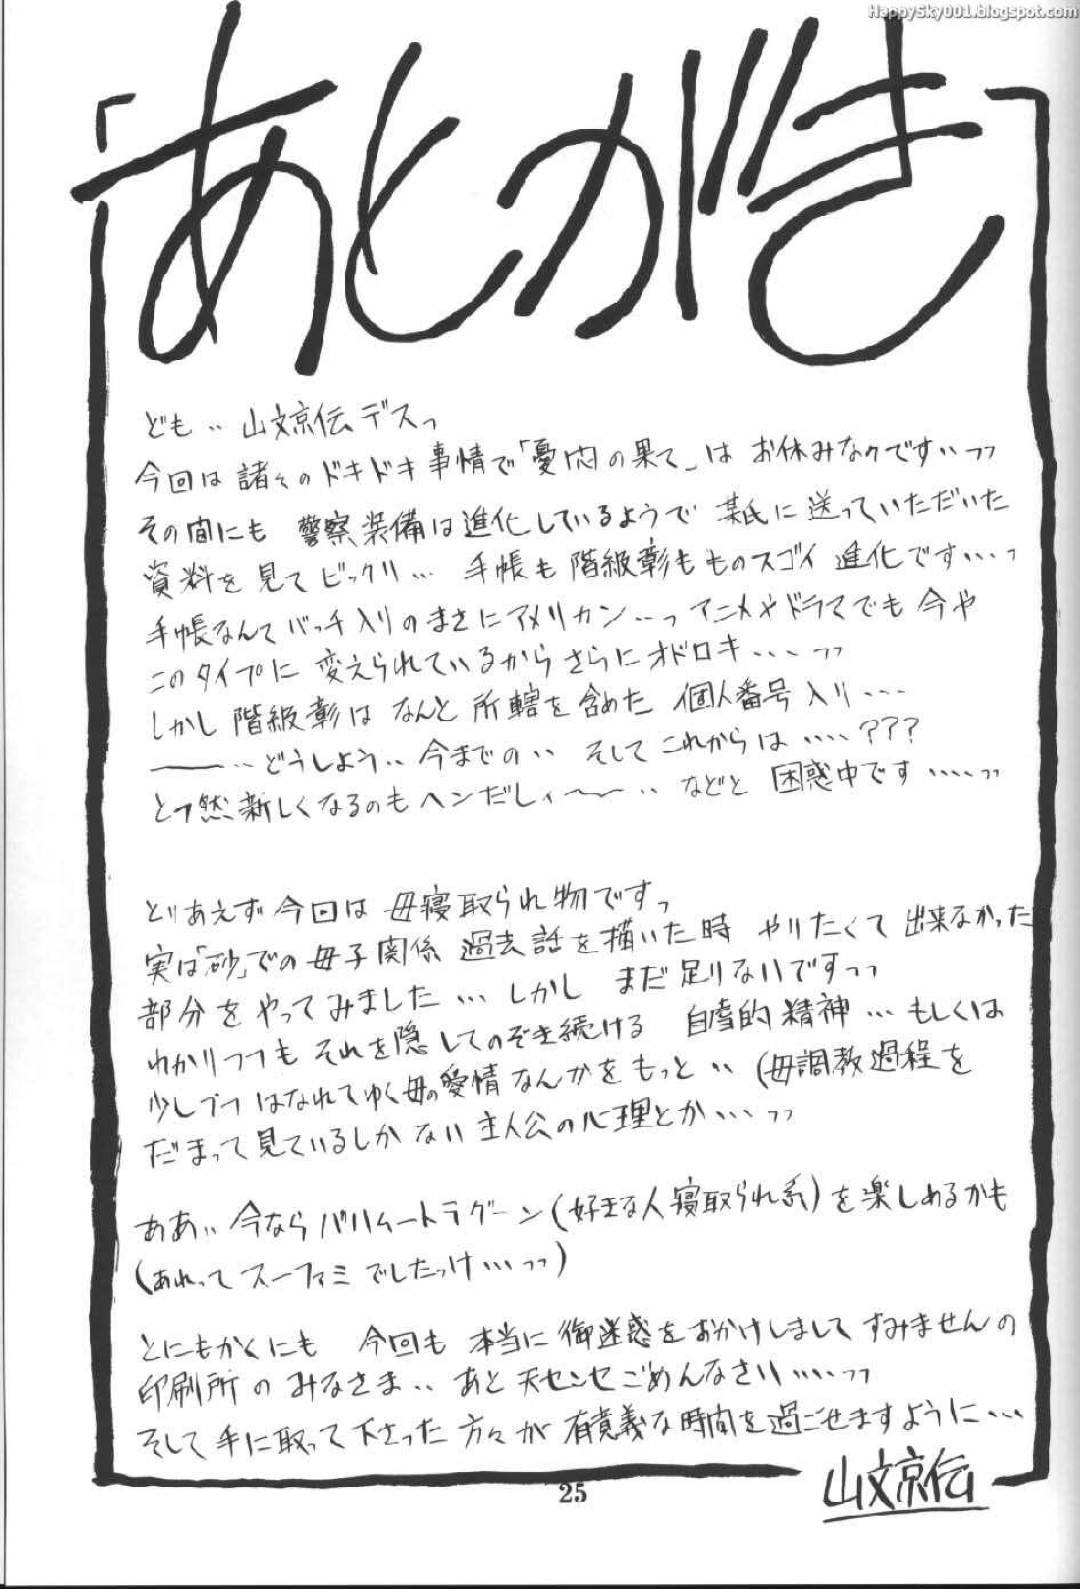 HappySky001.blogspot.com
あとがき
ども‥山文京伝デスっ
今回は諸々のドキドキ事情で「憂悶の果て」はお休みなのです‥ッッ
その間にも 警察装備は進化しているようで 某氏に送っていただいた
資料を見てビックリ… 手帳も階級彰もものスゴイ進化です…っ
手帳なんてバッチ入りのまさにアメリカン…っアニメやドラマでも今や
このタイプに変えられているからさらにオドロキ…ッッ
しかし階級彰はなんと所轄を含めた 個人番号入り…
――‥どうしよう‥今までの‥ そしてこれからは‥‥???
とつ然新しくなるのもヘンだしィ〜〜‥ などと 困惑中です‥‥ッッ
とりあえず今回は 母寝取られ物ですっ
実は「砂」での母子関係 過去話を描いた時 やりたくて出来なかった
部分をやってみました… しかし まだ足りないですッッ
わかりつつも それを隠してのぞき続ける 自虐的精神…もしくは
少しづつはなれてゆく母の愛情なんかをもっと‥(母調教過程を
だまって見ているしかない主人公の心理とか…ッッ
ああ‥今ならバハムートラグーン(好きな人寝取られ系)を楽しめるかも
(あれってスーファミでしたっけ…ッッ)
とにもかくにも 今回も 本当に御迷惑をおかけしましてすみませんの
印刷所のみなさま‥ あと天センセごめんなさい‥‥ッッ
そして手に取って下さった方々が有意義な時間を過ごせますように…
山文京伝
25